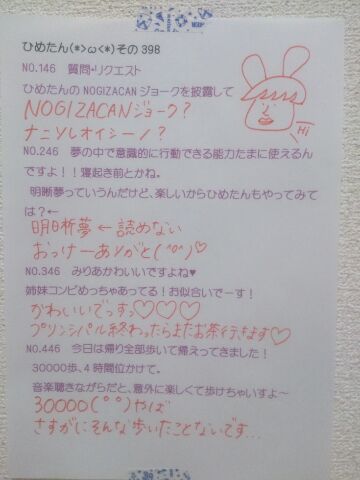 ひめたん(*>ω<*)その 398
NO.146　質問・リクエスト
ひめたんの NOGIZACAN ジョークを披露して
NOGIZACANジョーク?
ナニソレオイシーノ?
Hi
NO.246　夢の中で意識的に行動できる能力たまに使えるん
ですよ!!寝起き前とかね。
明晰夢っていうんだけど、楽しいからひめたんもやってみて
は?←
明日斤夢 ← 読めない
おっけーありがと(^o^)♡
NO.346　みりあかわいいですよね♥
姉妹コンビめっちゃあってる!お似合いでーす!
かわいいでっすっ♡♡♡
プリンシパル終わったらまたお茶行くます♡
NO.446　今日は帰り全部歩いて帰えってきました!
30000歩、4時間位かけて。
音楽聴きながらだと、意外に楽しくて歩けちゃいますよ～
30000(°°)やば
さすがにそんな歩いたことないです...